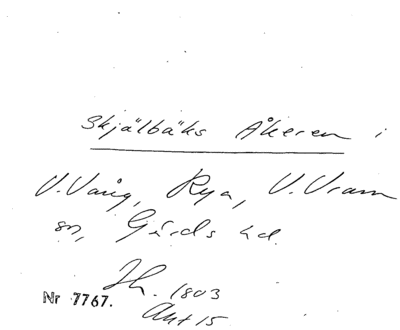 Skjälbäks Åkeren i
V. Vång, Rya, V. Vram
sn, Gärds hd.
Jh. 1803
Nr 7767.
Akt 15